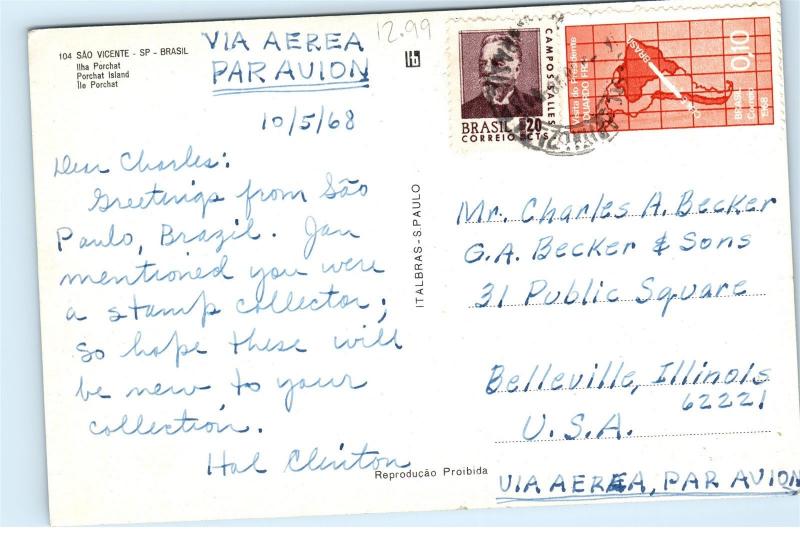 104 SÃO VICENTE - SP - BRASIL
Ilha Porchat
Porchat Island
Île Porchat
VIA AEREA
PAR AVION
12.99
10/5/68
Dear Charles:
Greetings from São
Paulo, Brazil. Jan
mentioned you were
a stamp collector;
so hope these will
be new to your
collection.
Hal Clinton
Reprodução Proibida
ITALBRAS-S.PAULO
CAMPOS SALLES
BRASIL 20
CORREIO CTS
Visita do Presidente
EDUARDO FREI
BRASIL
CHILE
0,10
BRASIL
Correio
1968
Mr. Charles A. Becker
G.A. Becker & Sons
31 Public Square
Belleville, Illinois
62221
U.S.A.
VIA AEREA, PAR AVION